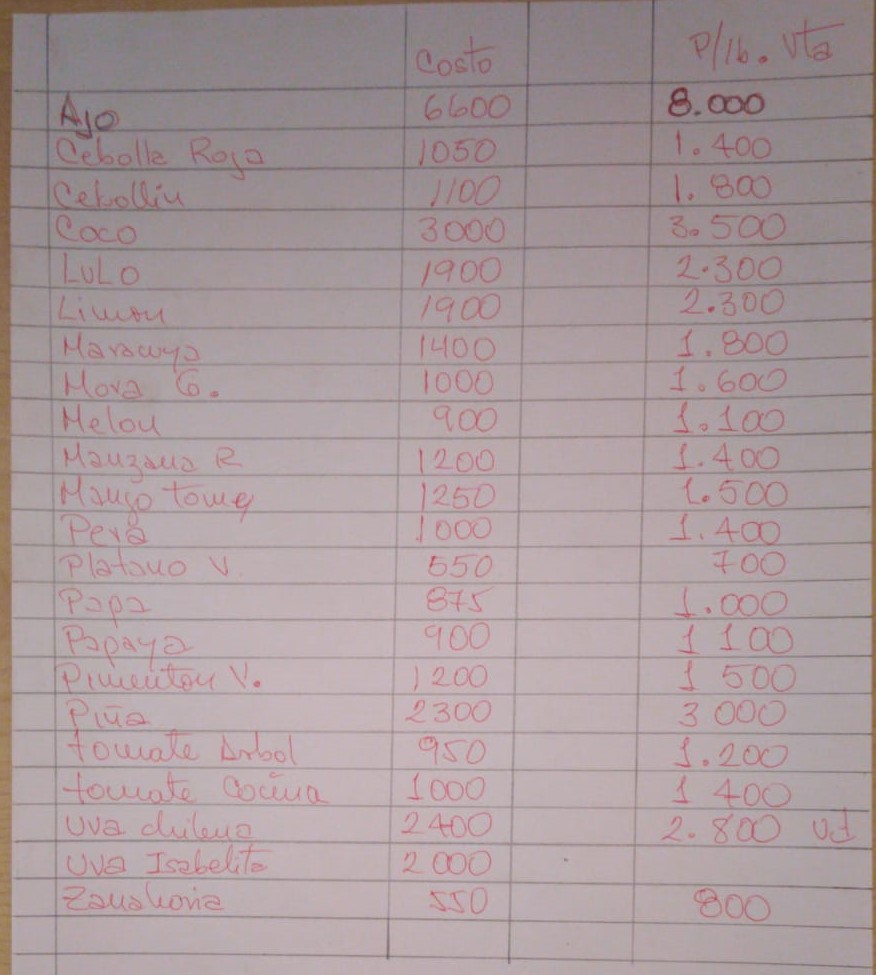 Costo P/lb. Vta
Ajo 6600 8.000
Cebolla Roja 1050 1.400
Cebollin 1100 1.800
Coco 3000 3.500
LULO 1900 2.300
Limon 1900 2.300
Maracuya 1400 1.800
Mora G. 1000 1.600
Melon 900 1.100
Manzana R 1200 1.400
Mango tomy 1250 1.500
Pera 1000 1.400
Platano V. 550 700
Papa 875 1.000
Papaya 900 1 100
Pimenton V. 1200 1 500
Piña 2300 3 000
tomate Arbol 950 1.200
tomate Cocina 1000 1 400
Uva chilena 2400 2.800 Ud
Uva Isabelita 2000
Zanahoria 550 800